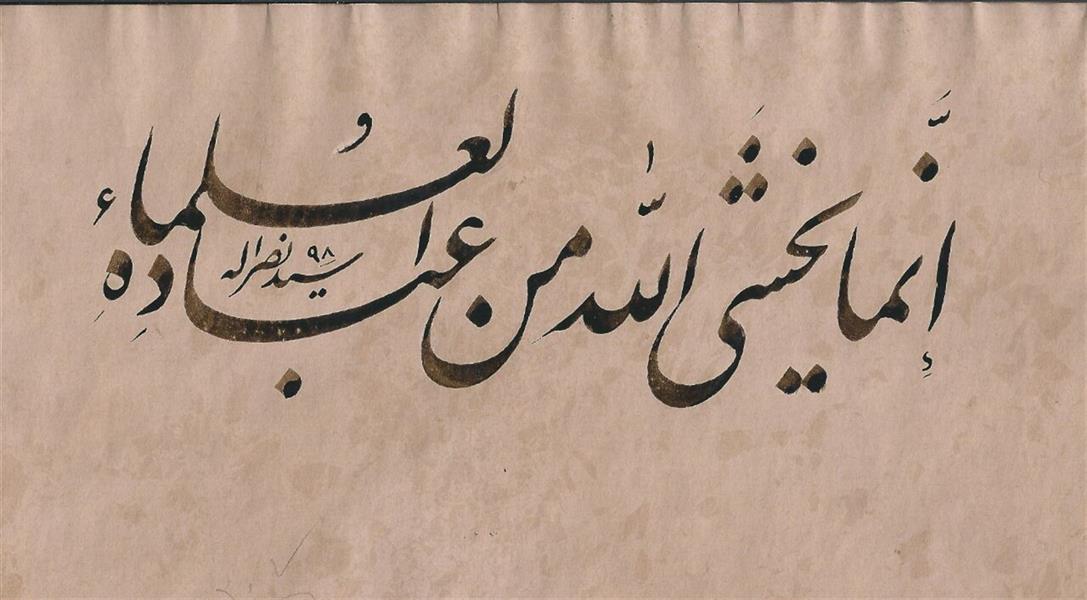 إنَّما يخشى اللّٰه من عبادِهِ العُلماء
سید نصراله ۹۸